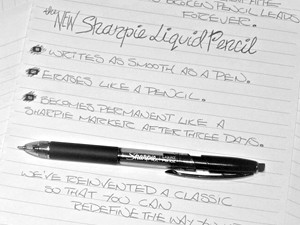 BROKEN PENCIL LEADS
FOREVER.
THE NEW Sharpie Liquid Pencil
WRITES AS SMOOTH AS A PEN.
ERASES LIKE A PENCIL.
BECOMES PERMANENT LIKE A
SHARPIE MARKER AFTER THREE DAYS.
Sharpie
WE'VE REINVENTED A CLASSIC
SO THAT YOU CAN
REDEFINE THE WAY